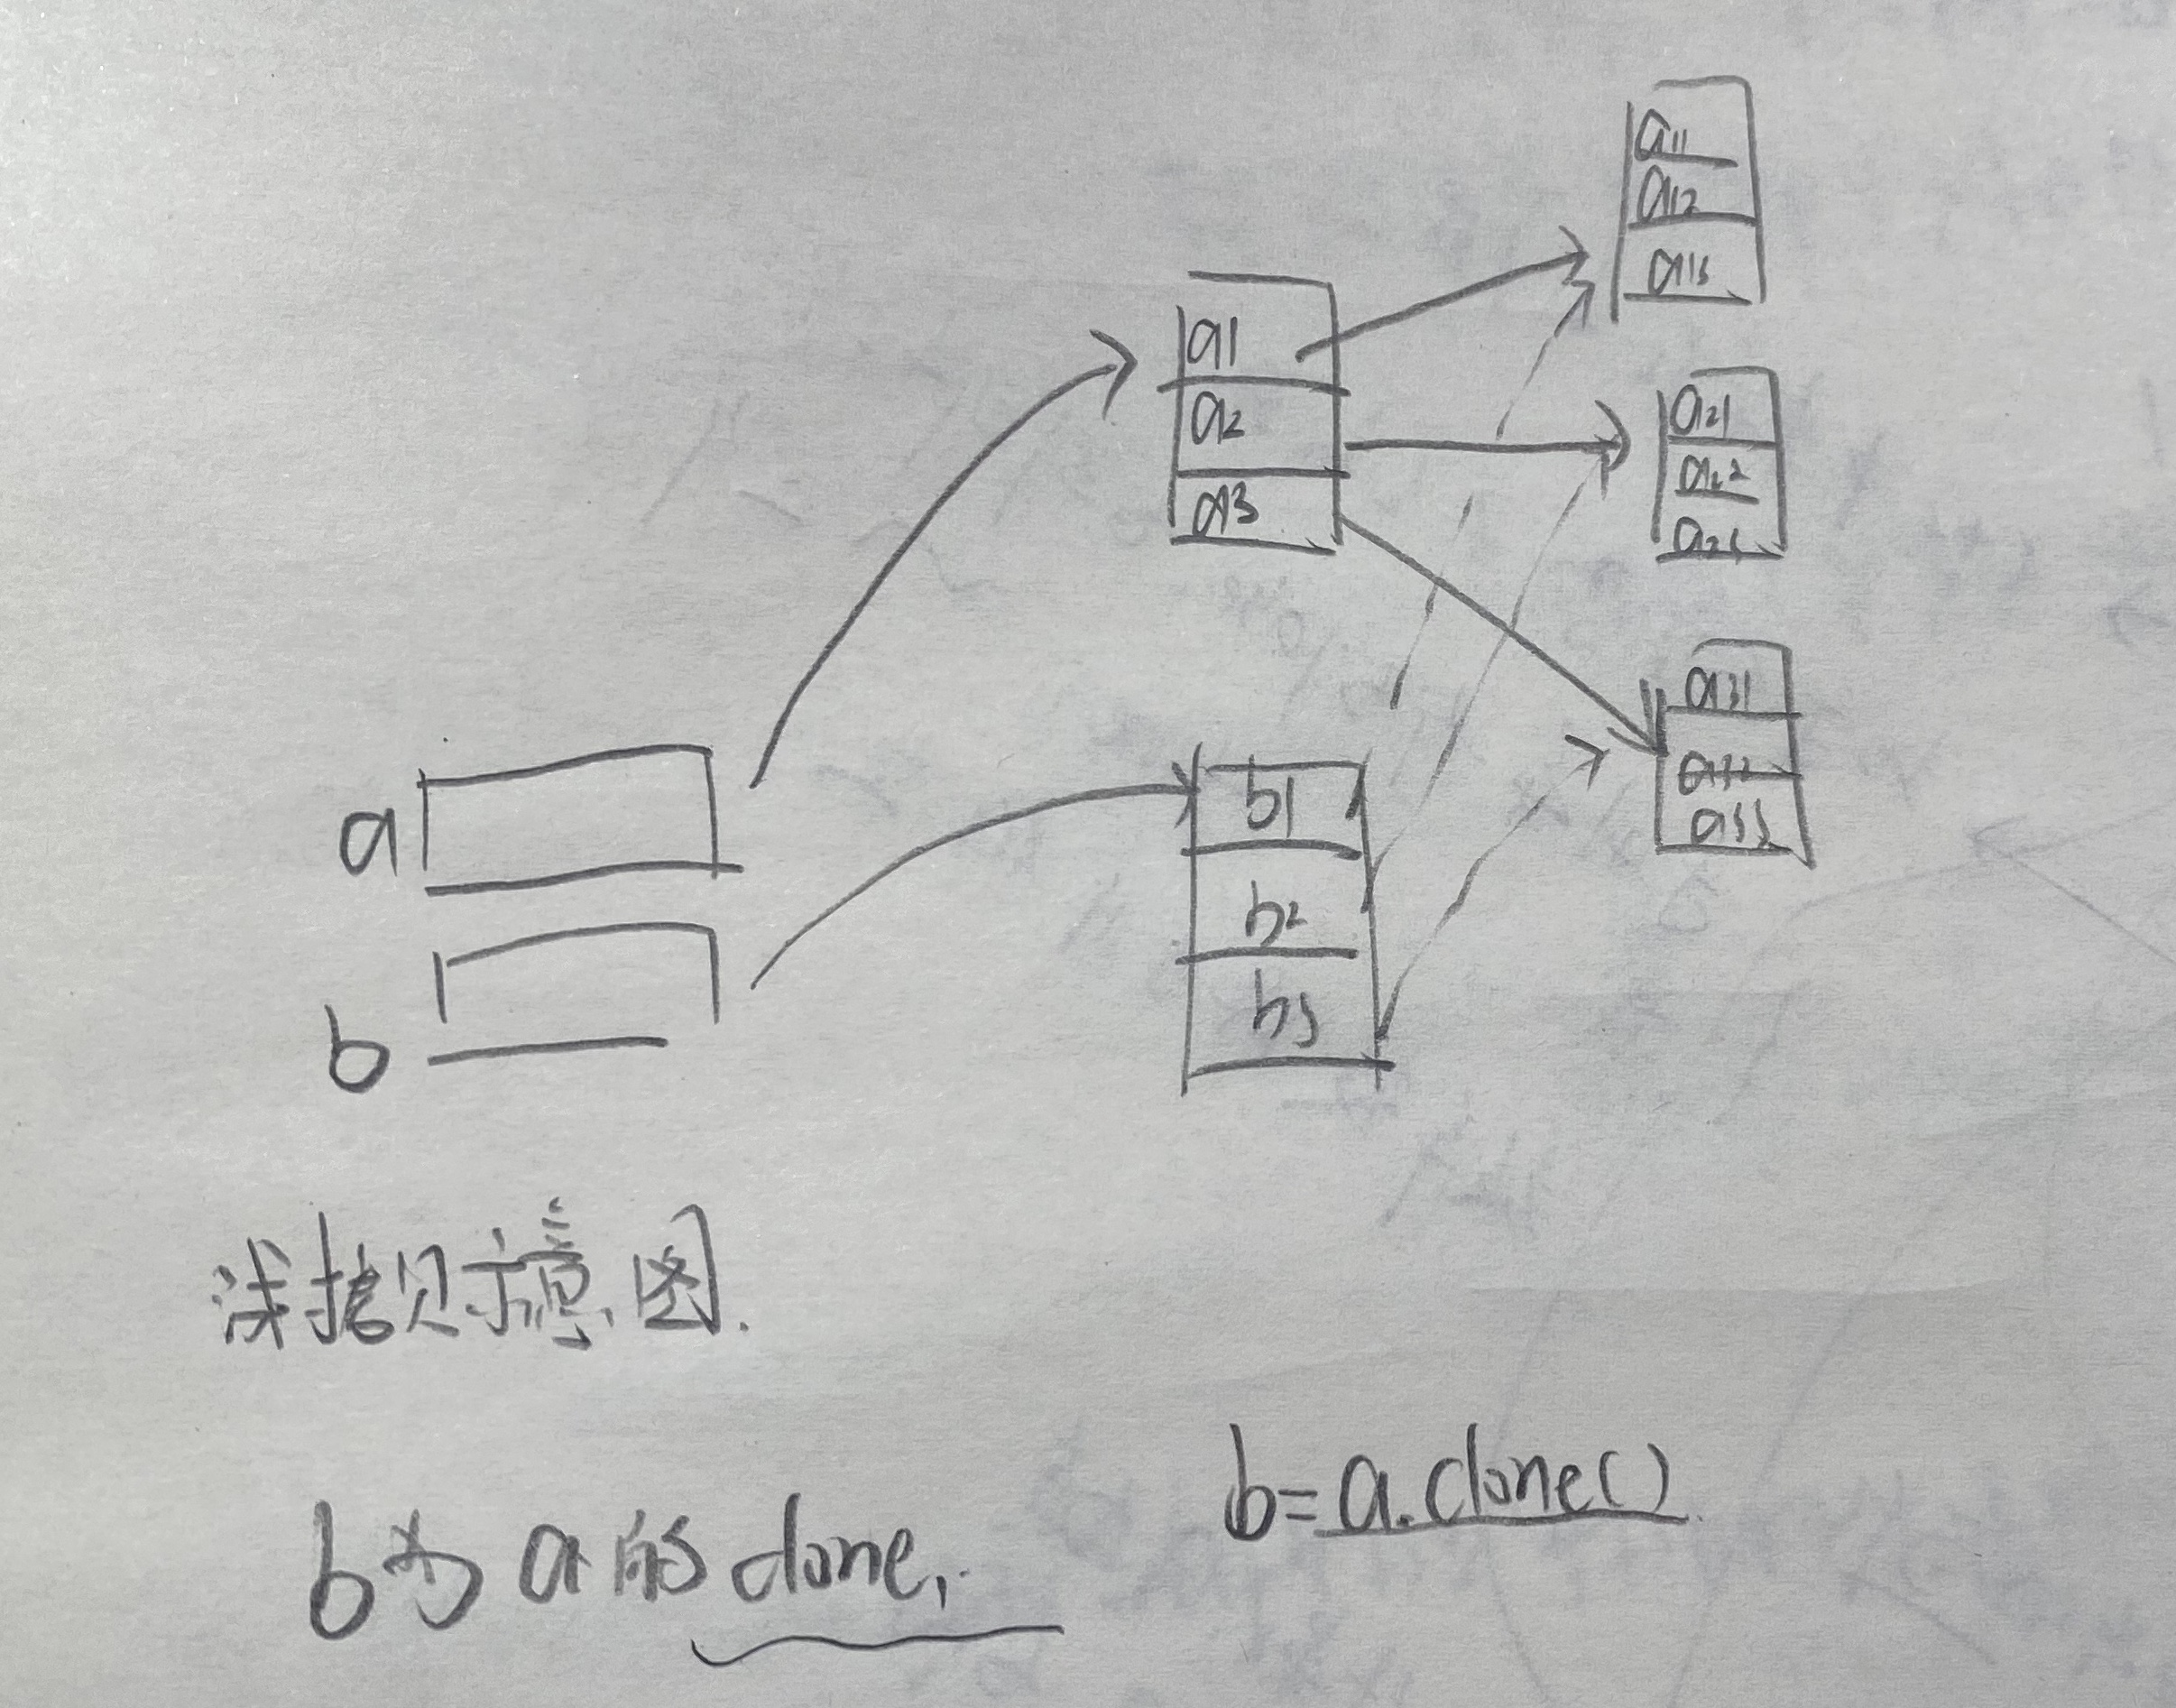 a11
a12
a13
a1
a2
a3
a21
a22
a23
a31
a32
a33
a
b
b1
b2
b3
浅拷贝示意图.
b=a.clone()
b为a的clone,